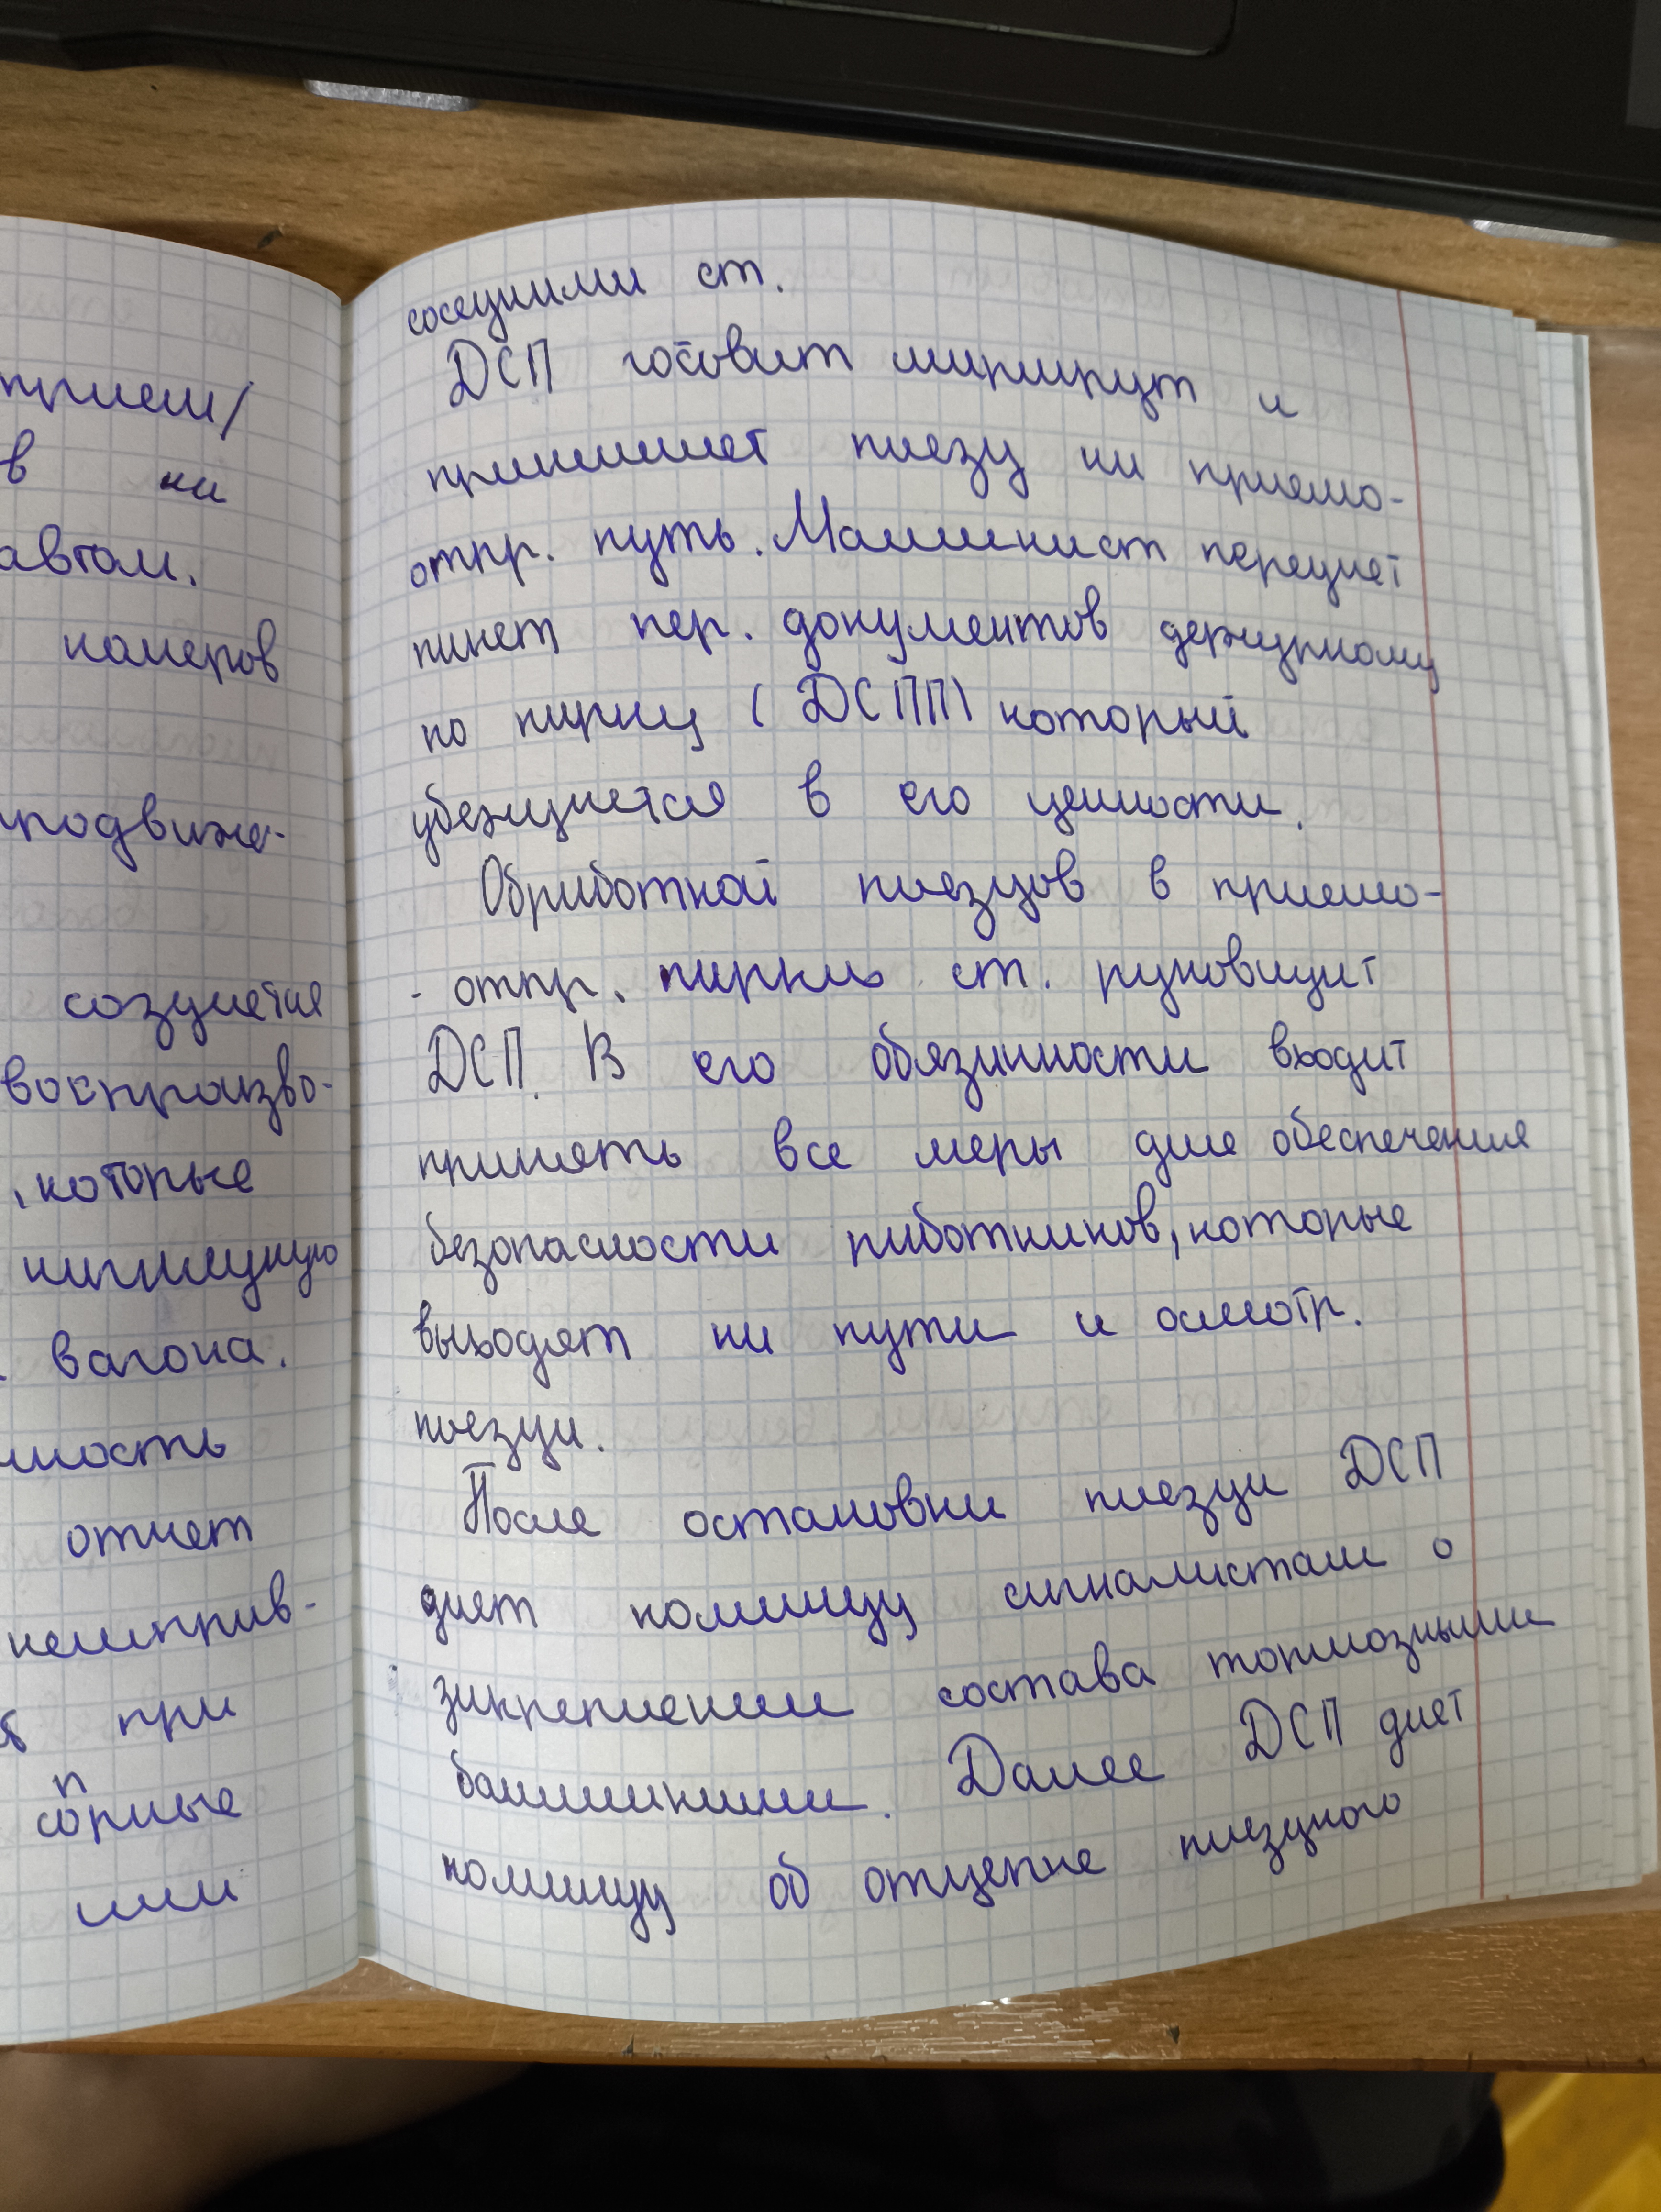 прием/
в на
автом.
номеров
продвиже-
создается
воспроизво-
, которые
вагона.
отчет
при
п
или
соседними ст.
ДСП готовит маршрут и
принимает поезд на приемо-
отпр. путь. Машинист передает
пакет пер. документов дежурному
по парку (ДСПП) который
убеждается в его целности.
Обработкой поездов в приемо-
- отпр. парках ст. руководит
ДСП. В его обязанности входит
принять все меры для обеспечения
безопасности работников, которые
выходят на пути и осмотр.
поезда.
После остановки поезда ДСП
дает команду сигналистам о
закреплении состава тормозными
башмаками. Далее ДСП дает
команду об отцепке поездного